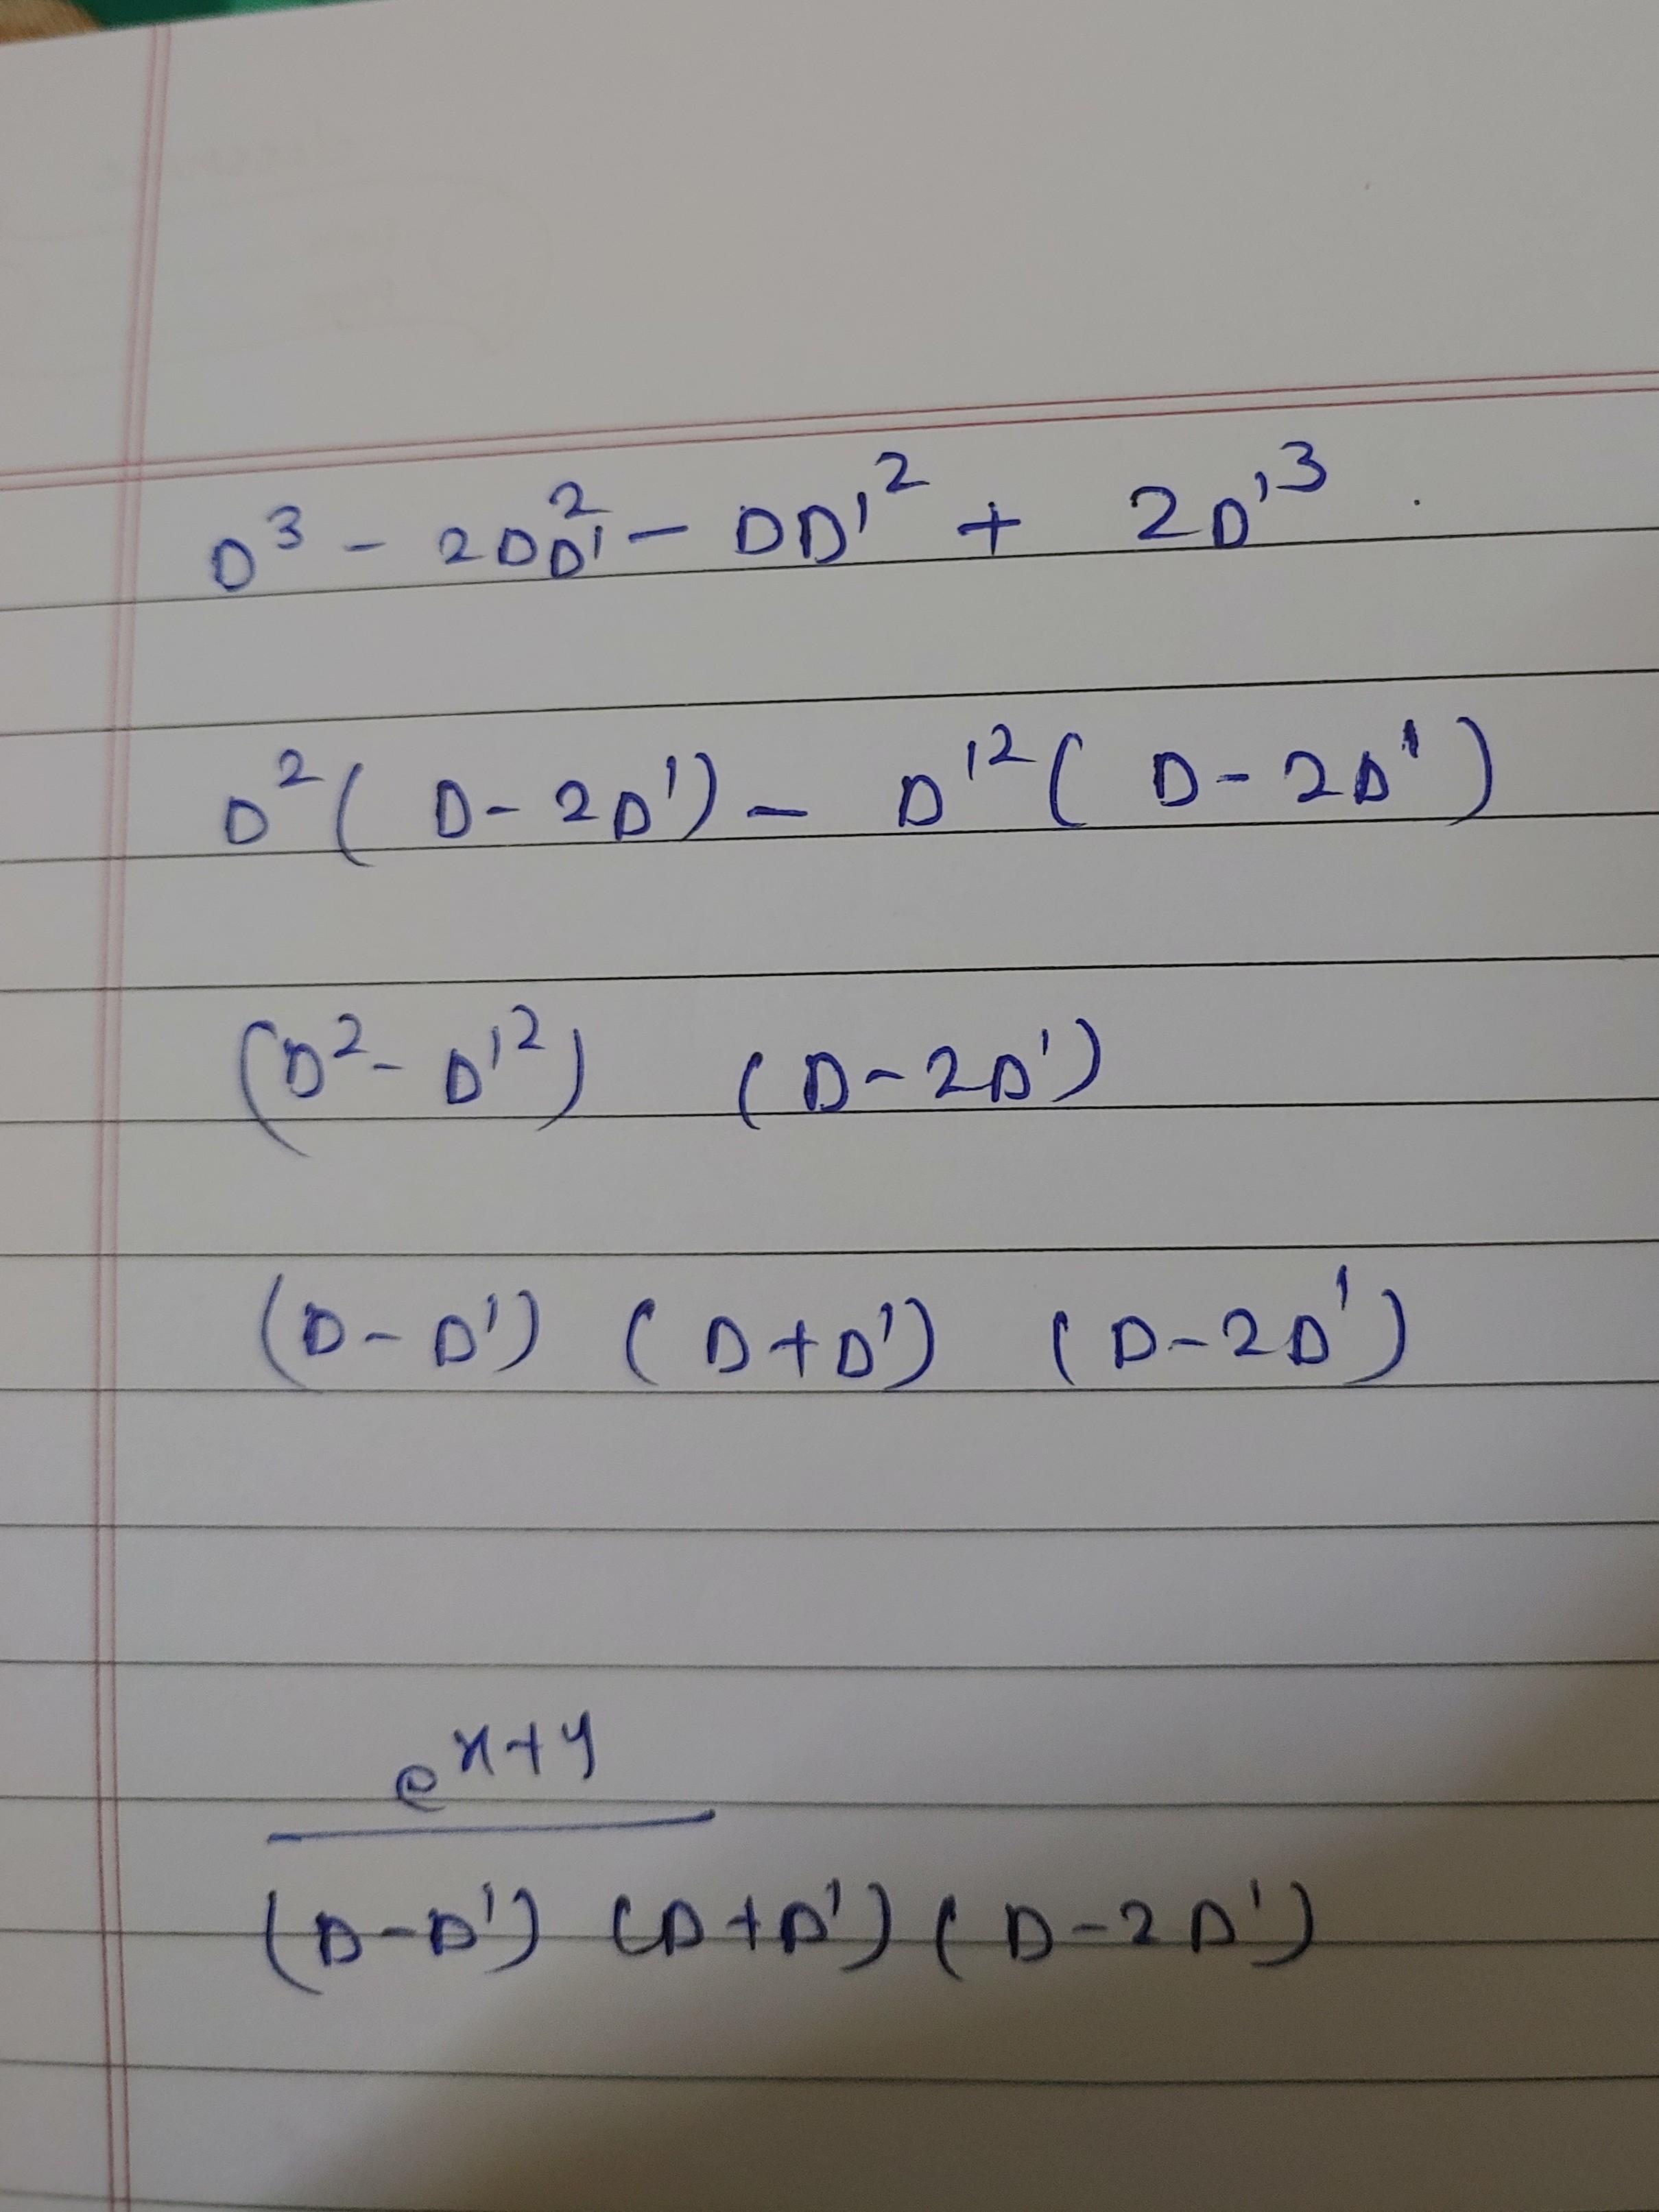 D³ - 2D²D' - DD'² + 2D'³.
D²(D-2D') - D'²(D-2D')
(D²-D'²) (D-2D')
(D-D') (D+D') (D-2D')
e^{x+y}
(D-D') (D+D') (D-2D')